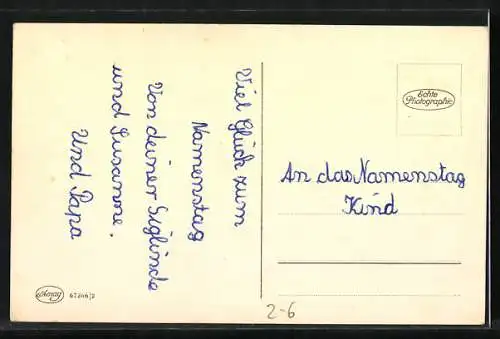 Viel Glück zum
Namenstag
Von deiner Siglinde
und Susanne.
Und Papa
Echte
Photographie
An das Namenstag
Kind
Amag
67346/2
2-6